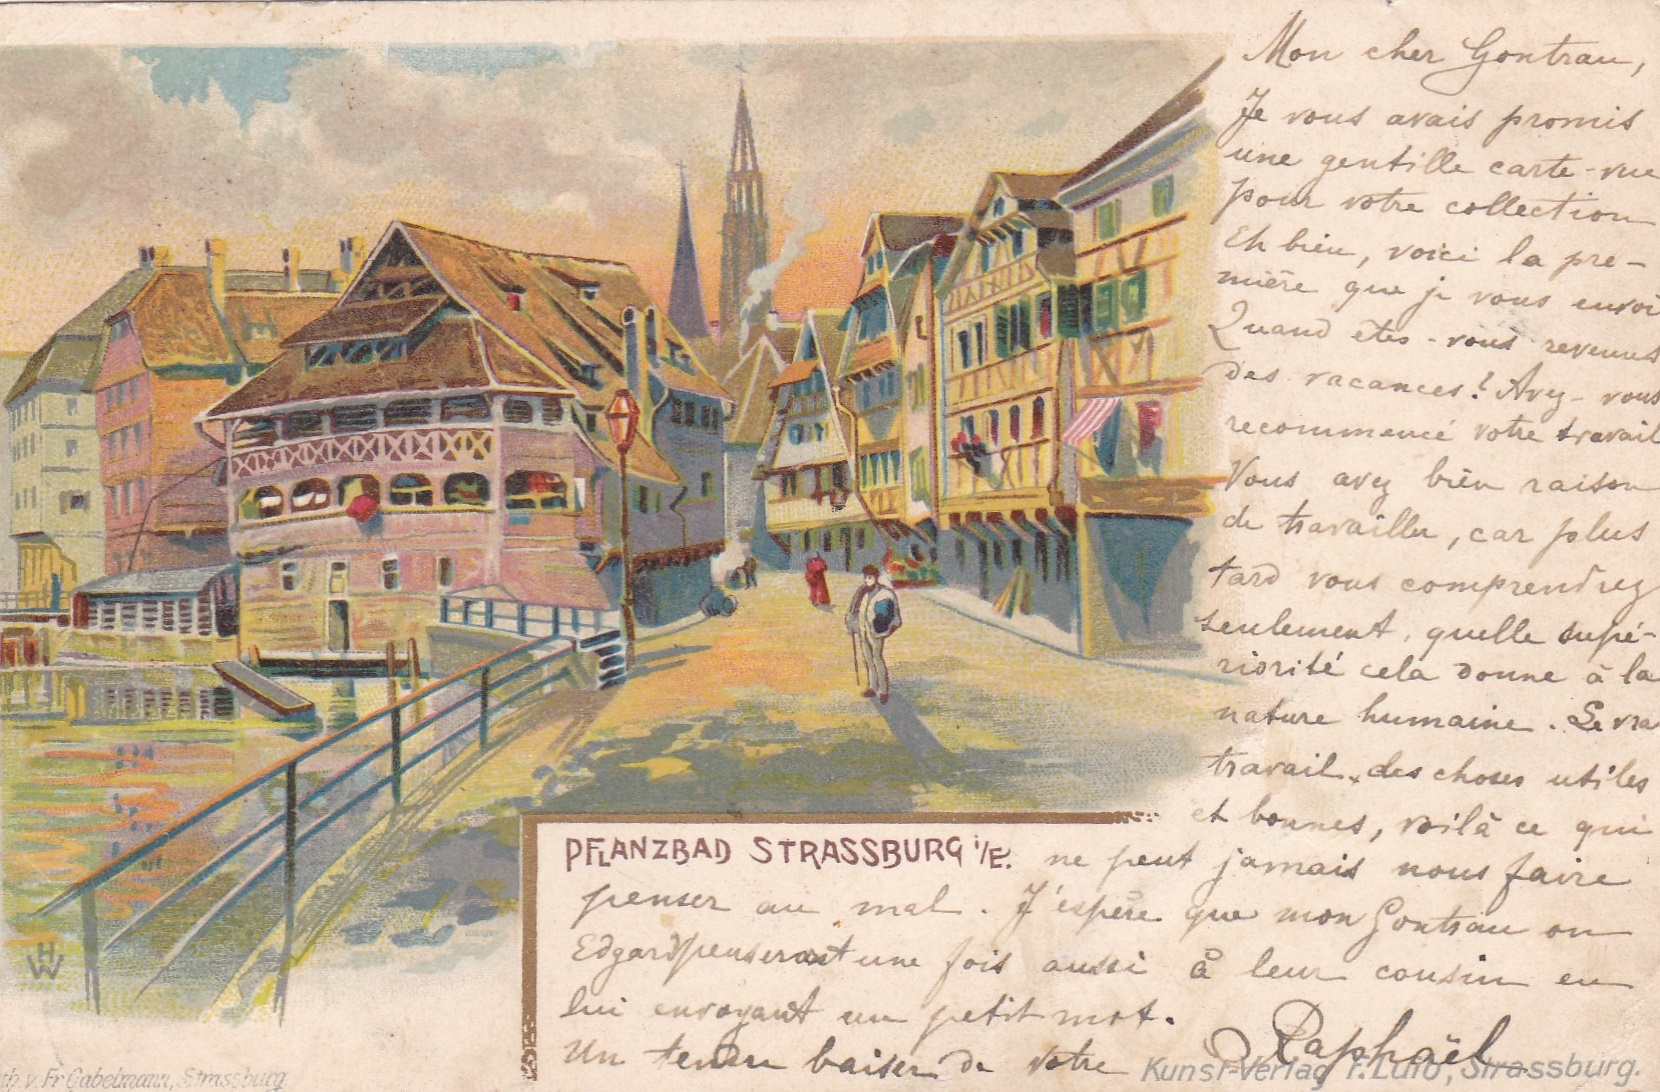 Mon cher Gontran,
Je vous avais promis
une gentille carte-vue
pour votre collection
Eh bien, voici la pre-
mière que je vous envoi
Quand etes-vous revenus
des vacances? Avez-vous
recommencé votre travail
Vous avez bien raison
de travailler, car plus
tard vous comprendrez
seulement, quelle supé-
riorité cela donne à la
nature humaine. Le vra
travail, des choses utiles
et bonnes, voilà ce qui
PFLANZBAD STRASSBURG i/E. ne peut jamais nous faire
penser au mal. J'espère que mon Gontran ou
Edgard penseront une fois aussi à leur cousin en
lui envoyant un petit mot.
Un tendre baiser de votre Raphaël
HW
th. v. Fr Gabelmann, Strassburg
Kunst-Verlag F. Luib, Strassburg.